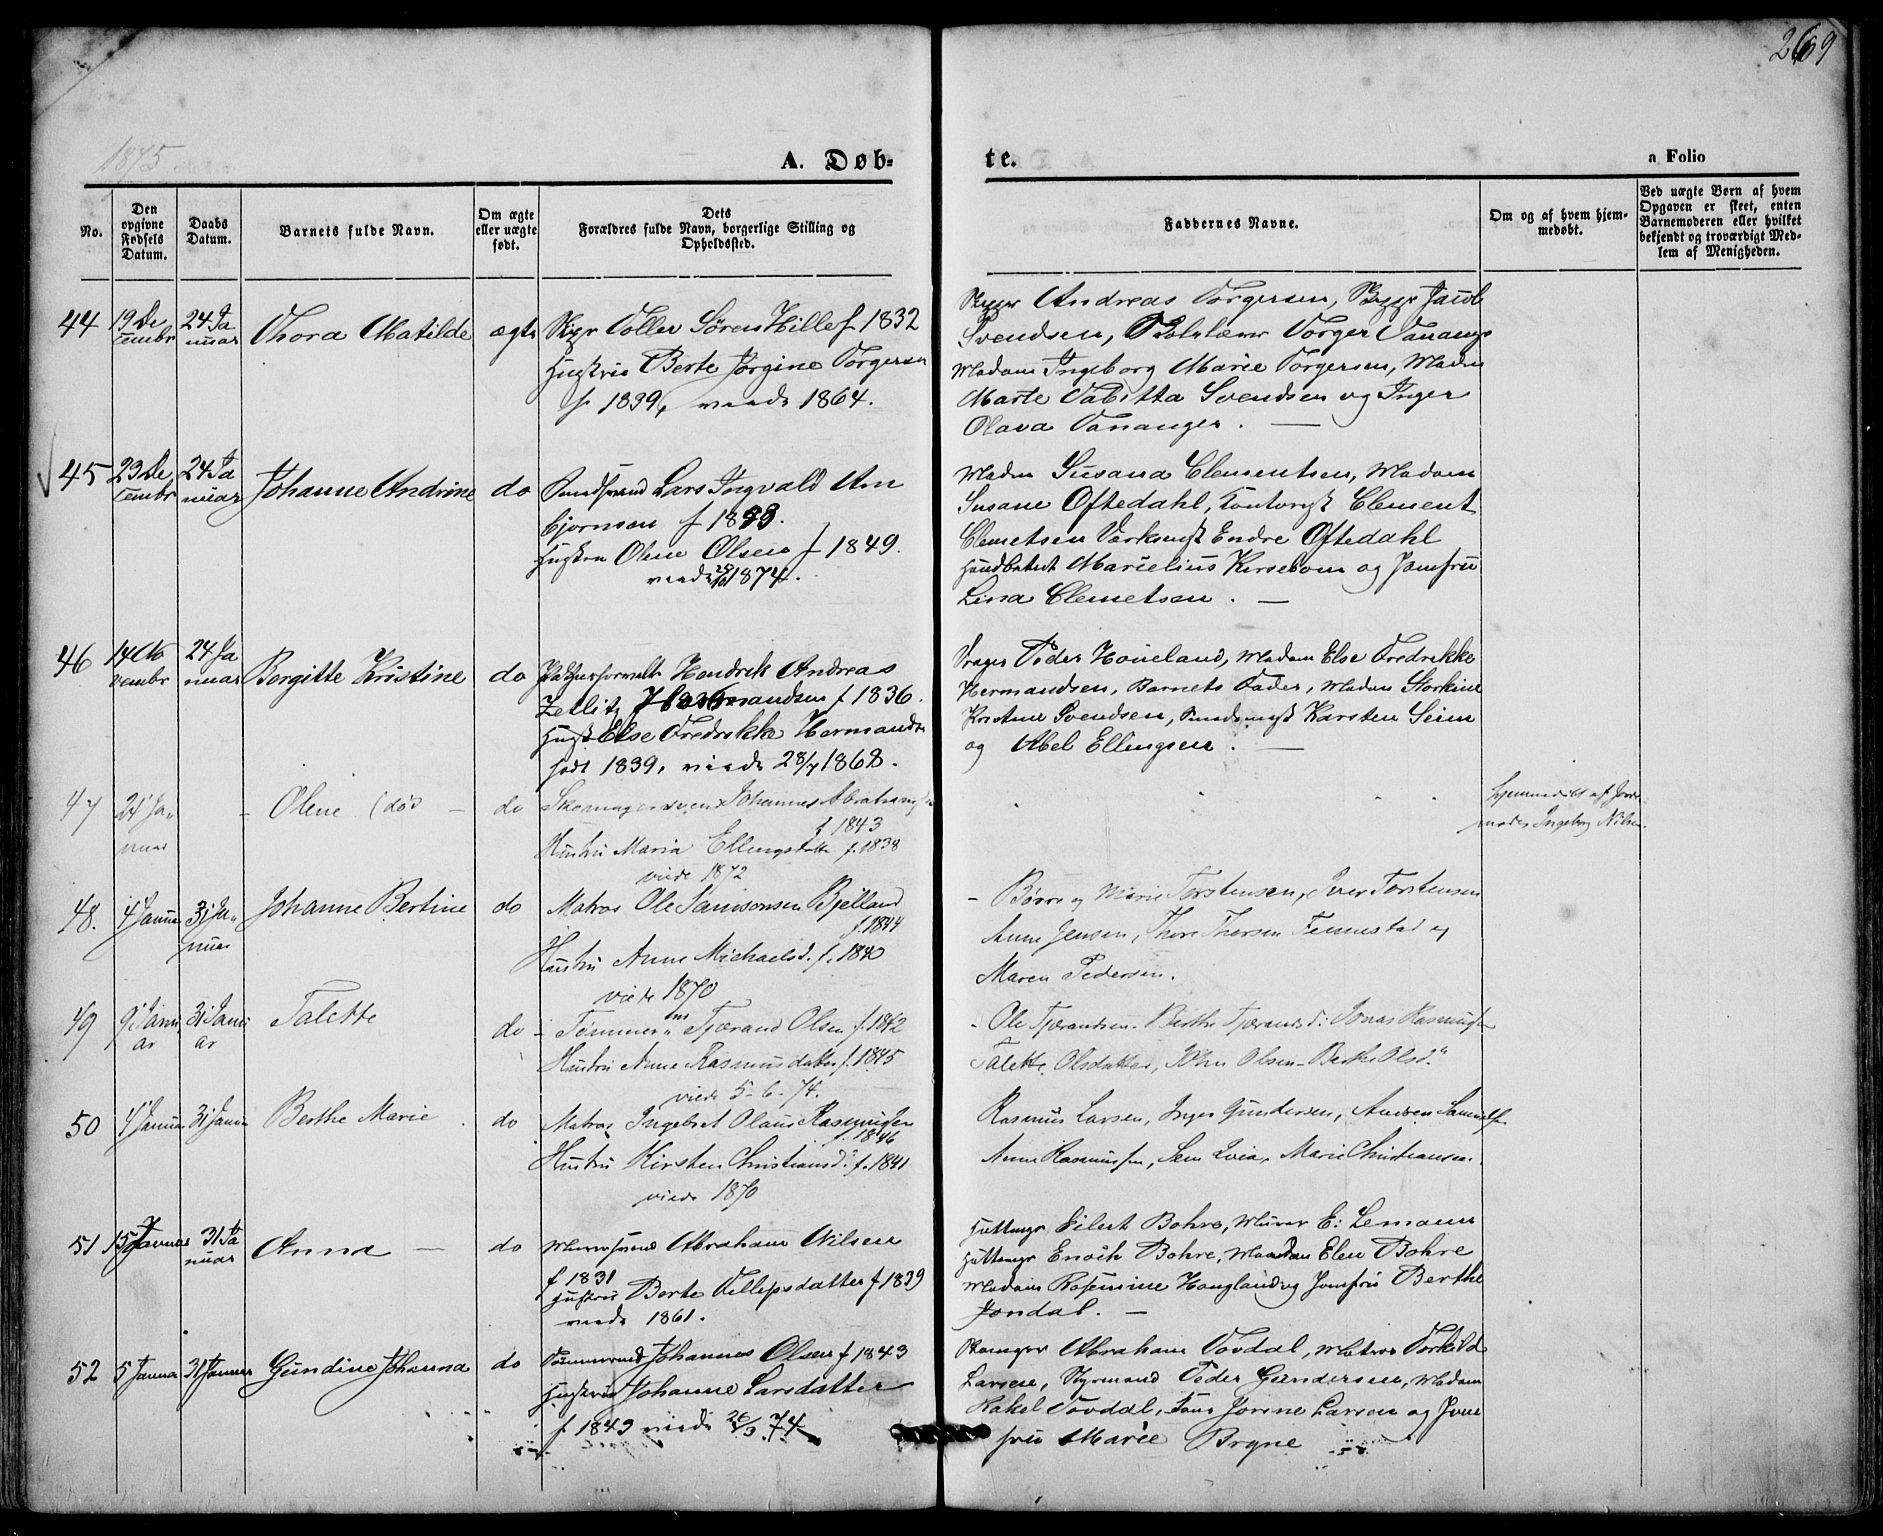 269
1875
A. Døb-
te.
a Folio
No.
Den opgivne Fødsels Datum.
Daabs Datum.
Barnets fulde Navn.
Om ægte eller uægte født.
Dets Forældres fulde Navn, borgerlige Stilling og Opholdssted.
Faddernes Navne.
Om og af hvem hjemmedøbt.
Ved uægte Børn af hvem Opgaven er skeet, enten Barnemoderen eller hvilket bekjendt og troværdigt Medlem af Menigheden.
44 19 De cembr 24 Ja nuar Thora Matilde ægte Skipr Toller Søren Hille f 1832
Hustru Berte Jørgine Torgersen
f 1839, viede 1864.
Skipper Andreas Torgersen, Skipper Jacob
Svendsen, Torger Tananger
Madam Ingeborg Marie Torgersen, Madm
Marte Tabitta Svendsen og Inger
Olava Tananger. —
45 23 De cembr 24 Ja nuar Johanne Andrine do Lars Ingvald Am
bjørnsen f 18
Hustru Oline Olsen f 1849.
viede 1874.
Madm Susana Clementsen, Madam
Susane Oftedahl, Clement
Clemetsen Endre Oftedahl
Marielius Kirsebom og Jomfru
Lina Clemetsen. —
46 14 No vembr 24 Ja nuar Bergitte Kristine do Hendrik Andreas
Zetlitz f 1836.
Hust Else Fredrikke Hermandsn
født 1839, viede 28/7 1868.
Peder Houeland, Madam Else Fredrikke
Hermandsen, Barnets Fader, Madam
Kristine Svendsen, Karsten Seim
og Abel Ellingsen. —
47 Ja nuar - Oline (død - do Skomagersvend Johannes Abrahamsen
f 1843
Hustru Maria Ellingsdatter f. 1838
viede 1872
hjemmedøbt af Jorde
moder Ingeborg Nilsen.
48. 4 Januar 31 Ja nuar Johanne Bertine do Matros Ole Samsonsen Bjelland
f. 1844
Hustru Anne Michaelsd. f. 1840
viede 1870
- Børre og Marie Torstensen, Iver Torstensen
Anne Jensen, Thore Thorsen Tennestad og
Maren Pedersen.
49 9 Janu ar 31 Janu ar Talette do - Tømmerm Tjerand Olsen f. 1842
Hustru Anne Rasmusdatter f. 1845
viede 5-6-74.
- Ole Tjerandsen - Berthe Tjerandsd: Jonas Rasmussen
Talette Olsdatter, John Olsen - Berthe Olsd.
50 4 Januar 31 Januar Berthe Marie do Matros Ingebret Olaus Rasmussen
f. 1846
Hustru Kirsten Christiansd. f. 1841
viede 1870
Rasmus Larsen, Inger Gundersen,
Anne Rasmussen, Marie Christiansen.
51 15 Januar 31 Ja nuar Anna — do Murersvend Abraham Nilsen
f 1831
Hustru Berte Tollefsdatter f 1839
viede 1861.
Eilert Bohre, Murer E: Lemann
Enock Bohre, Madam Elen Bohre
Madam Rasmine Hougland og Jomfru Berthe
Jondal. —
52 5 Januar 31 Januar Gundine Johanna do Tømmermd Johannes Olsen f 1843
Hustru Johanne Larsdatter
f 1843 viede 26/3 74
Abraham Tovdal, Matros Torkild
Larsen, Styrmand Peder Gundersen, Madam
Rakel Tovdal, Jorine Larsen og Jom
fru Marie Bryne